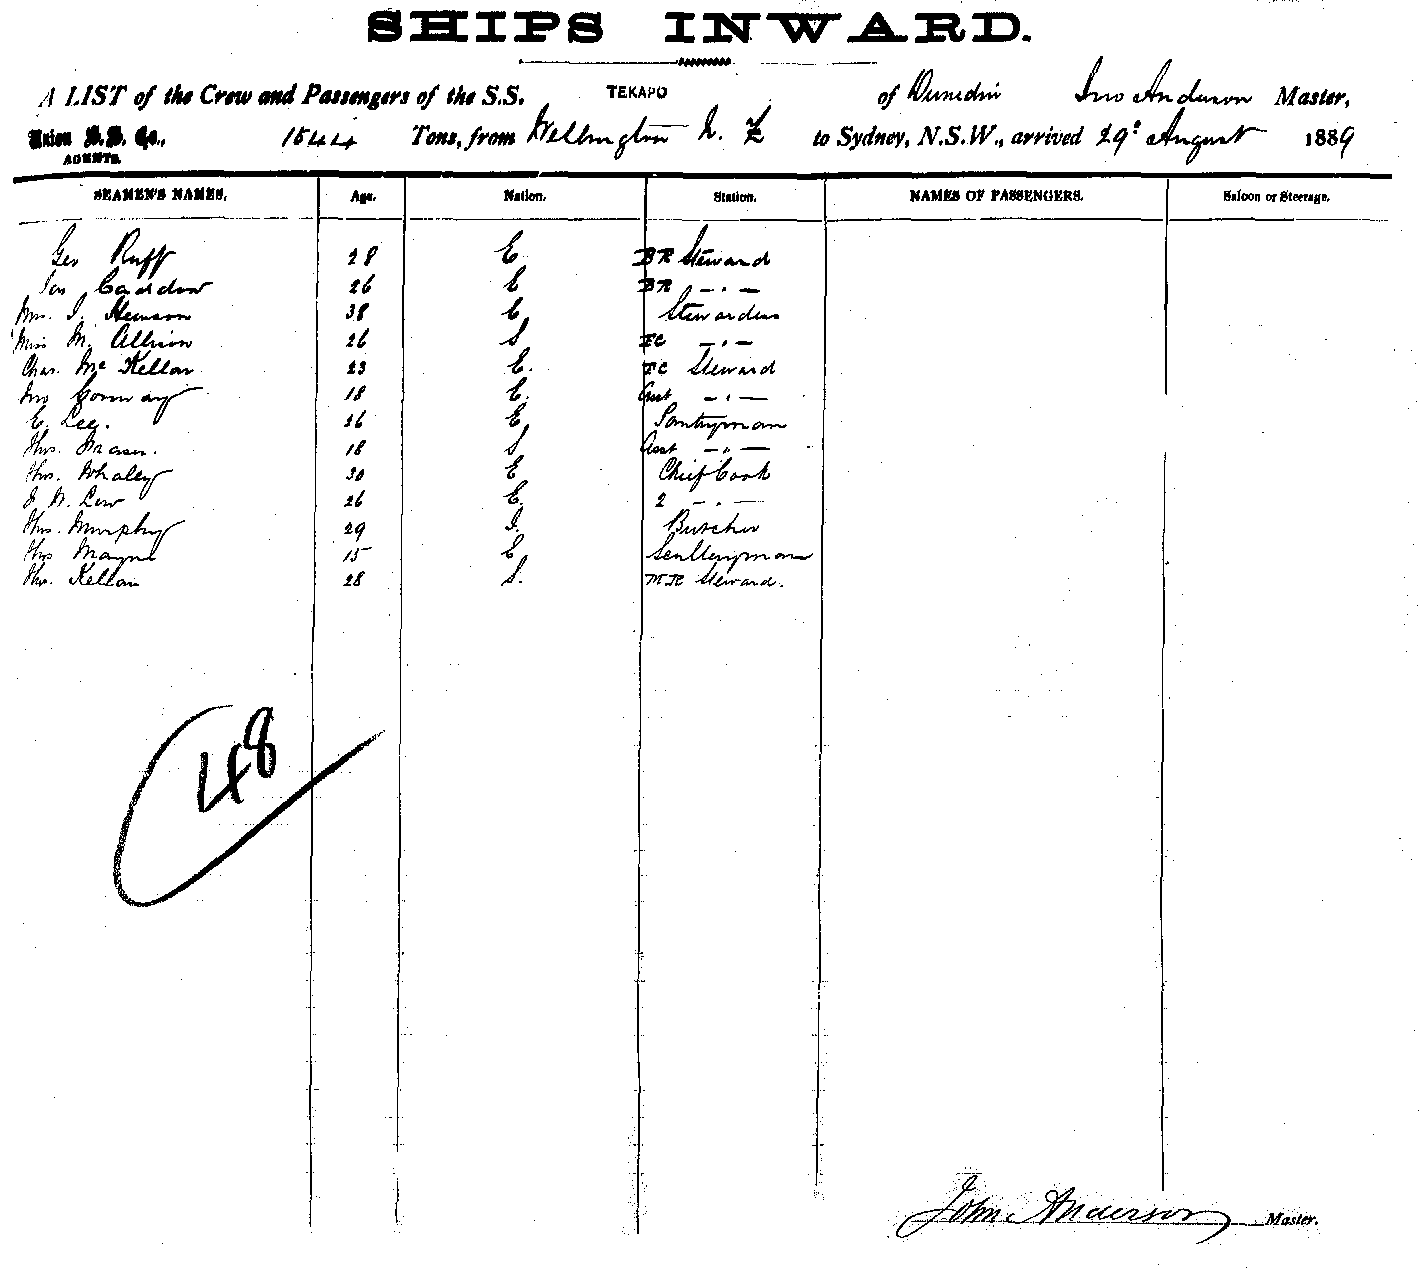 SHIPS INWARD.
A LIST of the Crew and Passengers of the S.S. TEKAPO of Dunedin Jno Anderson Master,
Union S.S. Co., 1544 Tons, from Wellington N.Z to Sydney, N.S.W., arrived 29 August 1889
AGENTS.
SEAMEN'S NAMES. Age. Nation. Station. NAMES OF PASSENGERS. Saloon or Steerage.
Geo Ruff 28 E BR Steward
Caddow 26 E BR - " -
Mrs. Hewson 38 E Stewardess
Miss M. Allison 26 S FC - " -
Chas. McKellar 23 E. FC Steward
Jno Conway 18 E. Asst - " -
E. Lee. 26 E Pantryman
Thos. Fraser. 18 S Asst - " -
Thos. Whaley 30 E Chief Cook
Low 26 E. 2 - " -
Thos. Murphy 29 I. Butcher
Thos Mayne 15 E Sculleryman
Thos. Kellar 28 S. MR Steward.
48
John Anderson Master.